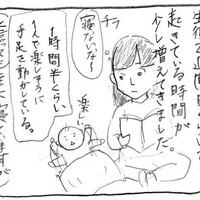 起きている時間が
少し増えてきました。
チラ
寝ないな〜
1時間半くらい
1人で楽しそうに
手足を動かしている。
楽しい